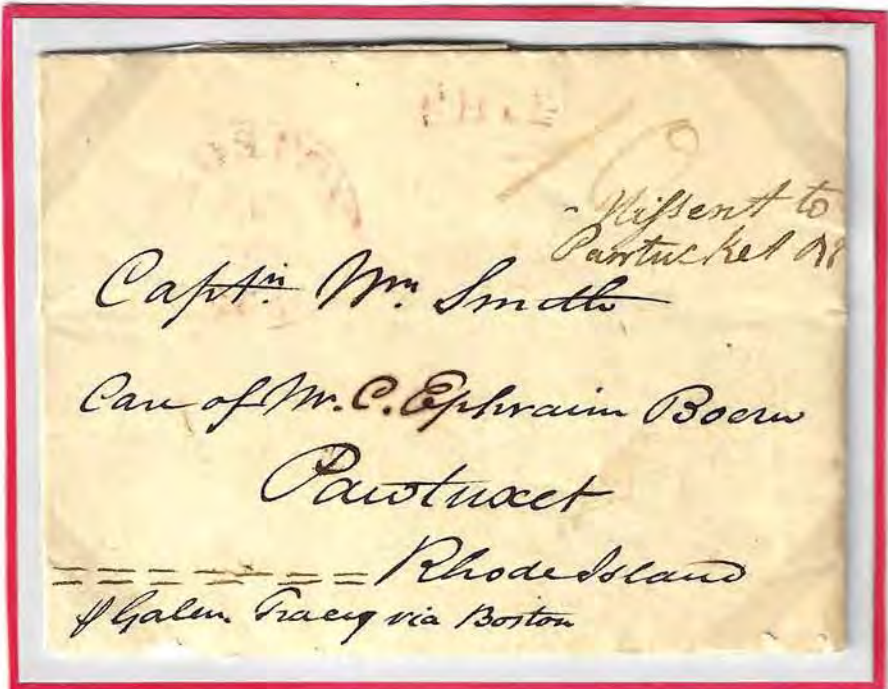 10
Missent to
Pawtucket RI
Captn. Wm. Smith
Care of Mr. C. Ephraim Boern
Pawtuxet
Rhode Island
Galen Tracy via Boston